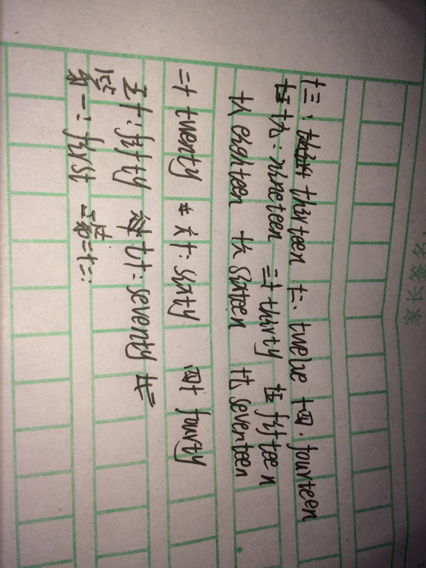 十三: thirteen 十二. twelve 十四. fourteen
十九: nineteen 三十 thirty 十五 fifteen
十八 eighteen 十六 sixteen 十七 seventeen
二十 twenty 六十: sixty 四十 fourty
五十: fifty 七十: seventy
第一: first
家长签名